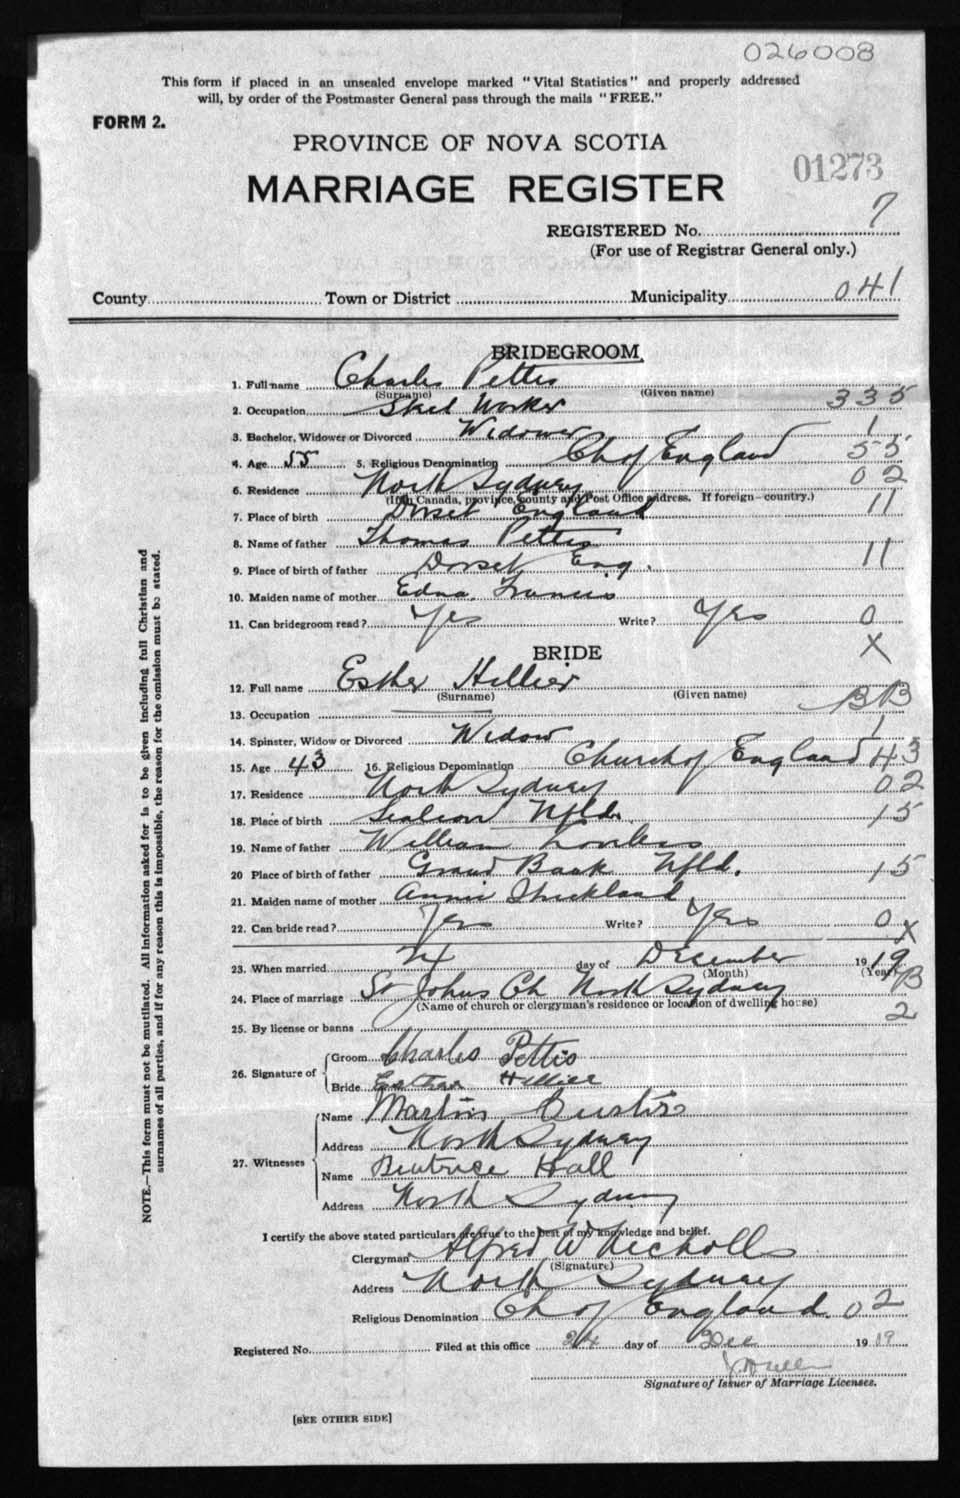 026008
This form if placed in an unsealed envelope marked "Vital Statistics" and properly addressed
will, by order of the Postmaster General pass through the mails "FREE."
FORM 2.
PROVINCE OF NOVA SCOTIA
01273
MARRIAGE REGISTER
REGISTERED No. 7
(For use of Registrar General only.)
County Town or District Municipality 041
BRIDEGROOM
1. Full name Charles Pettis
(Surname) (Given name)
2. Occupation Steel Worker 335
3. Bachelor, Widower or Divorced Widower 1
4. Age 55 5. Religious Denomination Ch of England 55
6. Residence North Sydney 02
(If in Canada, province, county and Post Office address. If foreign—country.)
7. Place of birth Dorset England 11
8. Name of father Thomas Pettis
9. Place of birth of father Dorset Eng. 11
10. Maiden name of mother Edna Francis
11. Can bridegroom read? Yes Write? Yes 0
X
BRIDE
12. Full name Esther Hillier
(Surname) (Given name)
13. Occupation BB
14. Spinster, Widow or Divorced Widow 1
15. Age 43 16. Religious Denomination Church of England 43
17. Residence North Sydney 02
18. Place of birth Nfld. 15
19. Name of father William
20 Place of birth of father Grand Bank Nfld. 15
21. Maiden name of mother Annie Strickland
22. Can bride read? Yes Write? Yes 0
X
23. When married 24 day of December 1919
(Month) (Year)
B
24. Place of marriage St Johns Ch North Sydney
(Name of church or clergyman's residence or location of dwelling house)
2
25. By license or banns
26. Signature of Groom Charles Pettis
Bride Esther Hillier
27. Witnesses Name Martin
Address North Sydney
Name Beatrice Hall
Address North Sydney
I certify the above stated particulars are true to the best of my knowledge and belief.
Clergyman Alfred W Nicholls
(Signature)
Address North Sydney
Religious Denomination Ch of England. 02
Registered No. Filed at this office 24 day of Dec 1919
Signature of Issuer of Marriage Licenses.
[SEE OTHER SIDE]
NOTE.—This form must not be mutilated. All information asked for is to be given including full Christian and
surnames of all parties, and if for any reason this is impossible, the reason for the omission must be stated.